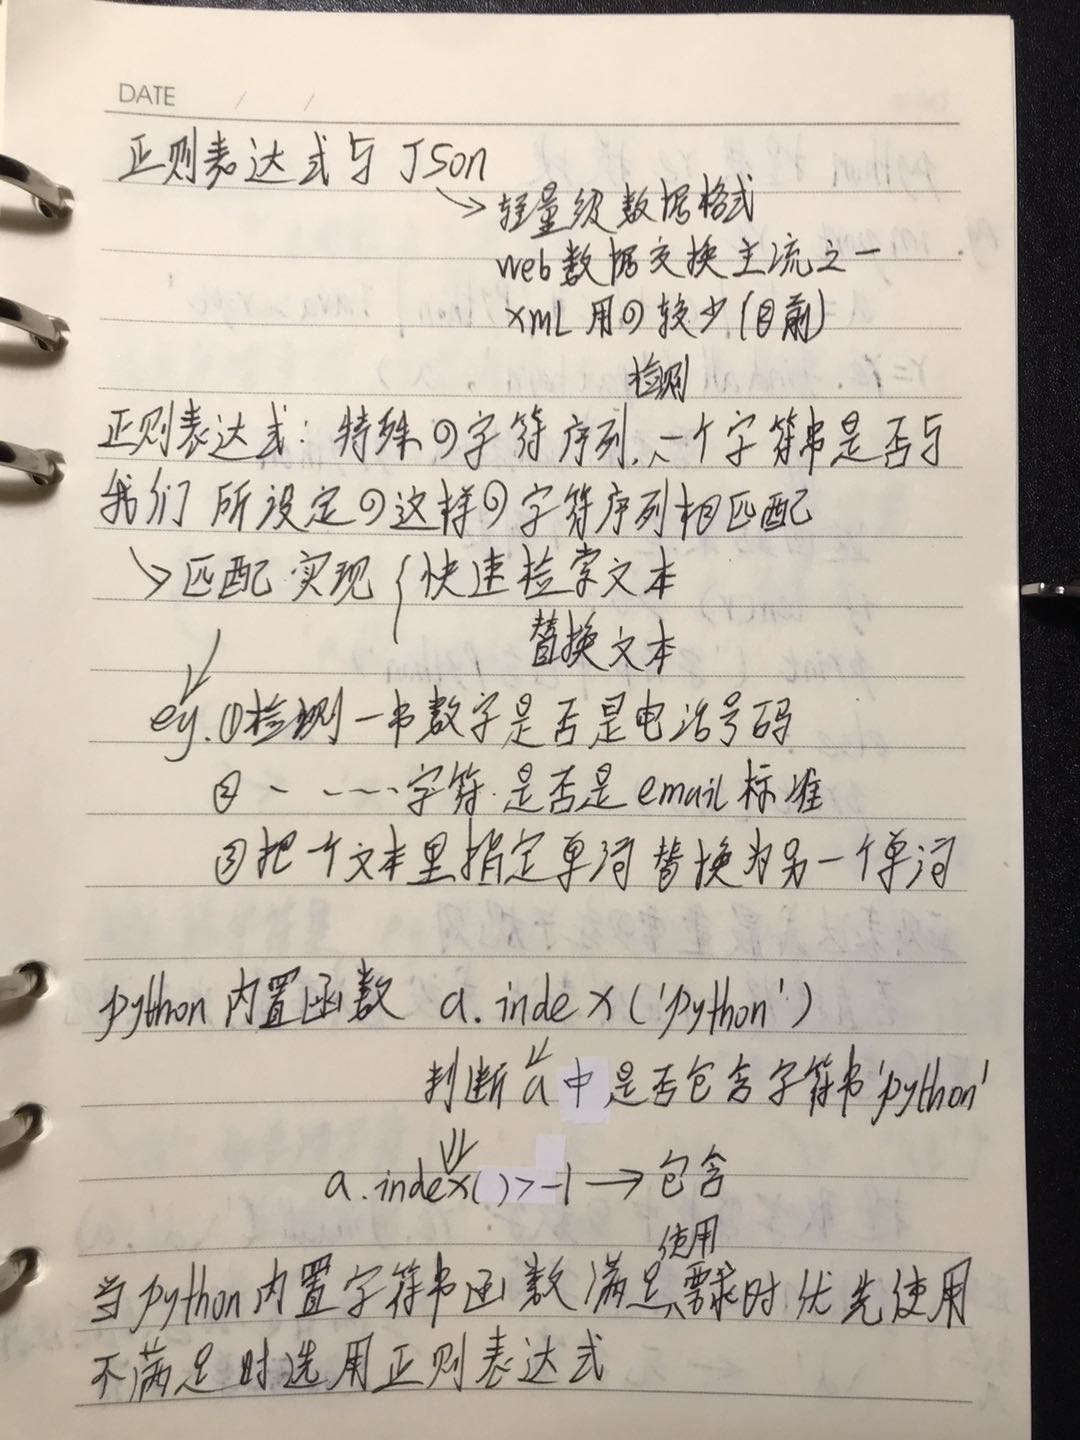 DATE / /
正则表达式与 JSon
轻量级数据格式
web数据交换主流之一
xmL 用の较少(目前)
检测
正则表达式: 特殊の字符序列, 一个字符串是否与
我们所设定の这样の字符序列相匹配
匹配 实现 { 快速检索文本
替换文本
eg. ①检测一串数字是否是电话号码
② - ---- 字符 是否是 email 标准
③把个文本里指定单词 替换为另一个单词
python 内置函数 a.index('python')
判断 a 中是否包含字符串'python'
a.index()>-1 → 包含
使用
当python内置字符串函数满足需求时优先使用
不满足时选用正则表达式